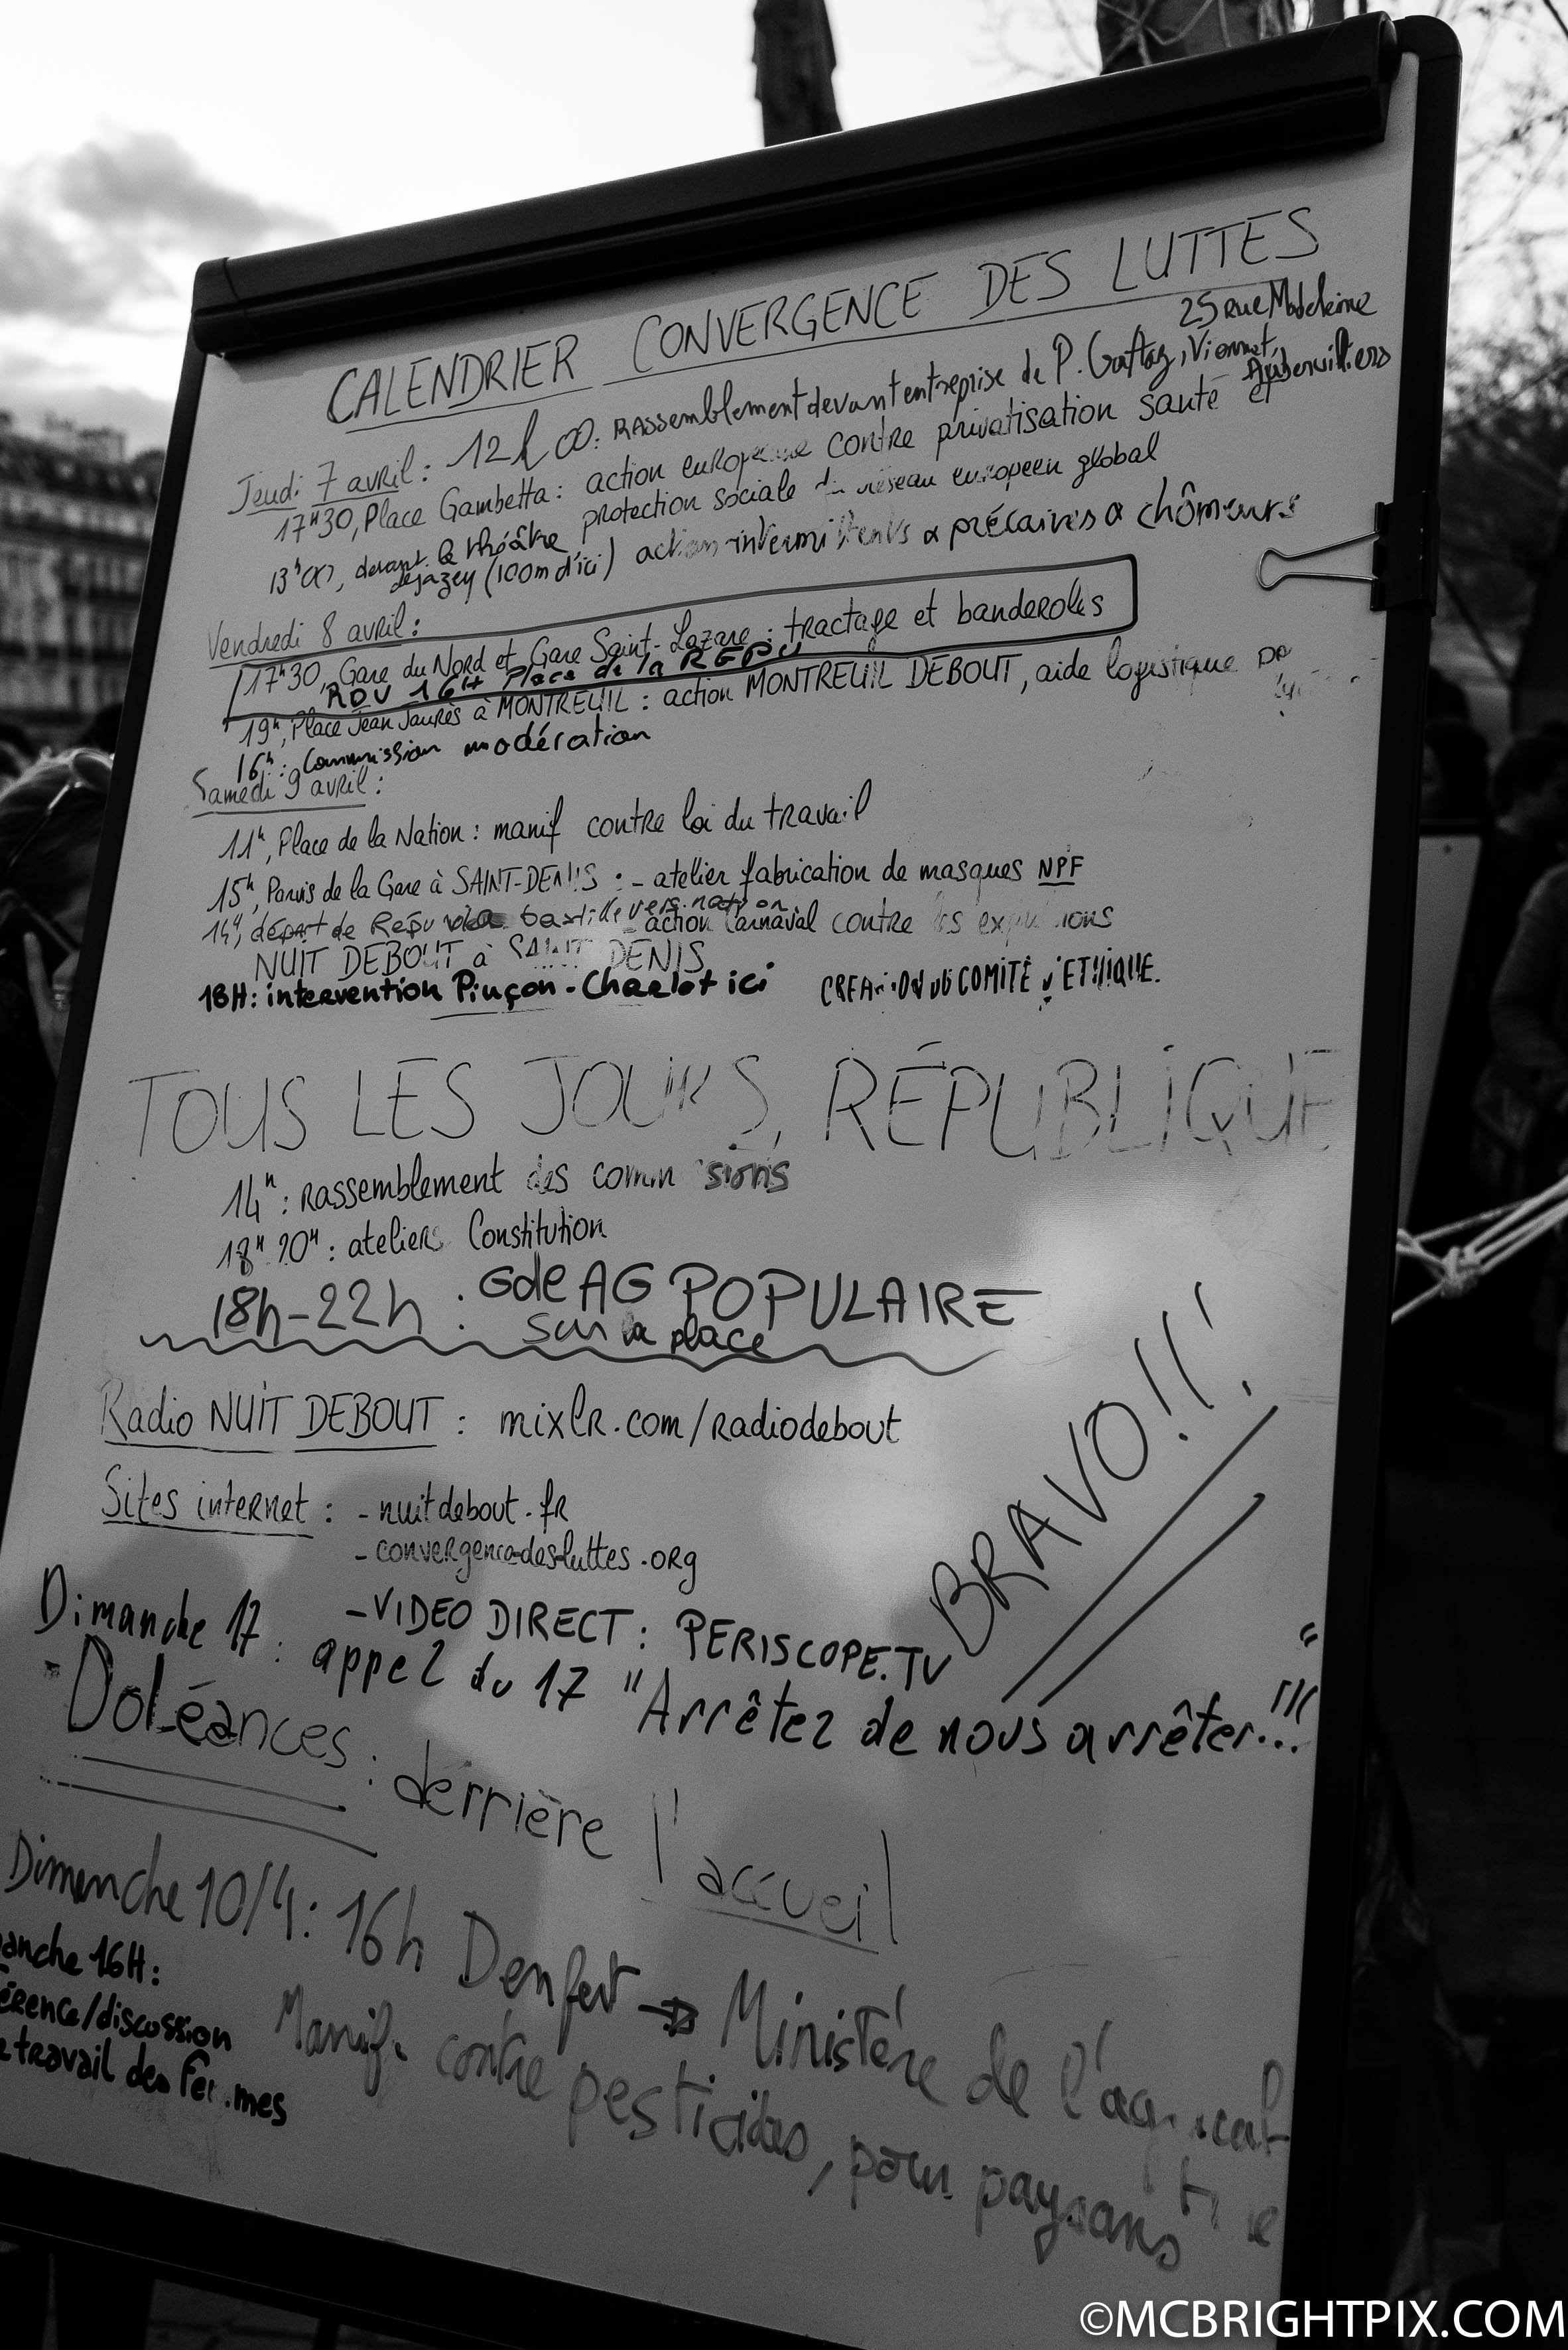 CALENDRIER CONVERGENCE DES LUTTES
25 rue Madeleine
Jeudi 7 avril : 12h00 : Rassemblement devant entreprise de P. Gattaz, Viennet,
Aubervilliers
17h30, Place Gambetta : action européenne contre privatisation santé et
protection sociale du réseau européen global
13h00, devant le théâtre
dejazey (100m d'ici) action intermittents & précaires & chômeurs
Vendredi 8 avril :
17h30, Gare du Nord et Gare Saint-Lazare : tractage et banderoles
RDV 16H Place de la REPU
19h, Place Jean Jaurès à MONTREUIL : action MONTREUIL DEBOUT, aide logistique
16h : Commission modération
Samedi 9 avril :
11h, Place de la Nation : manif contre loi du travail
15h, Parvis de la Gare à SAINT-DENIS : - atelier fabrication de masques NPF
14h, départ de Répu via bastille vers nation
- action Carnaval contre les expulsions
NUIT DEBOUT à SAINT DENIS
18H : intervention Pinçon-Charlot ici CREATION DU COMITÉ D'ETHIQUE.
TOUS LES JOURS, RÉPUBLIQUE
14h : rassemblement des commissions
18h 20h : ateliers Constitution
18h-22h : Gde AG POPULAIRE
sur la place
Radio NUIT DEBOUT : mixlr.com/radiodebout
BRAVO!!!
Sites internet : - nuitdebout.fr
- convergence-des-luttes.org
- VIDEO DIRECT : PERISCOPE.TV
Dimanche 17 : appel du 17 "Arrêtez de nous arrêter...!!!"
Doléances : derrière l'accueil
Dimenche 10/4 : 16h Denfert → Ministère de l'agricult
Manif. contre pesticides, pour paysans
anche 16H :
érence/discussion
travail des Femmes
©MCBRIGHTPIX.COM